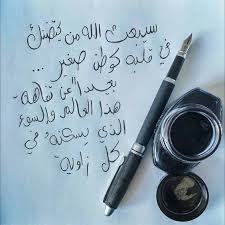 سيبعث الله من يحتضنك
في قلبه كوطن صغير ...
بعيداً عن تفاهة
هذا العالم والسوء
الذي يسكنه في
كل زاوية